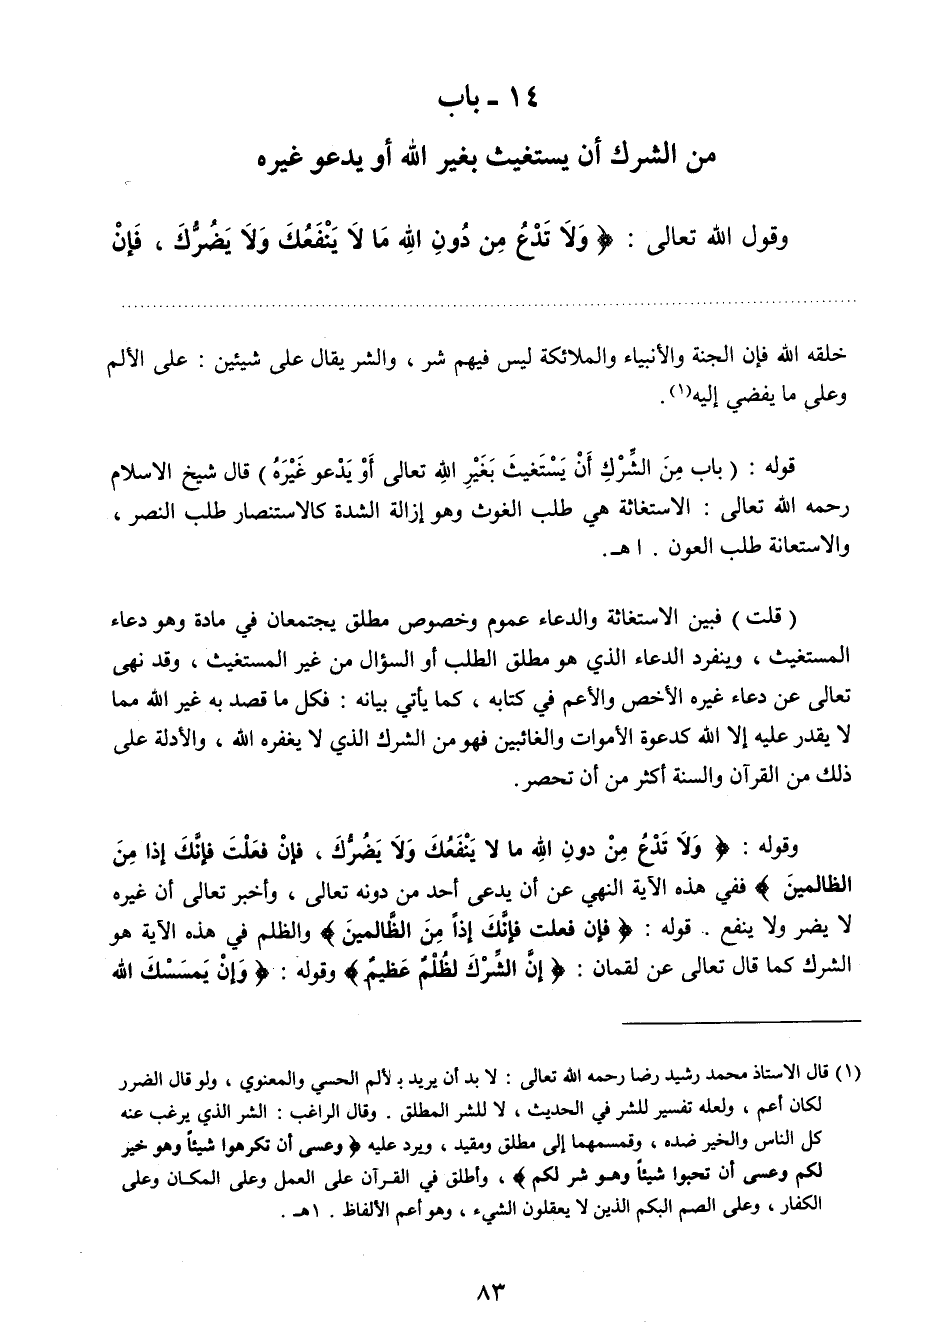 ١٤ - باب
من الشرك أن يستغيث بغير الله أو يدعو غيره
وقول الله تعالى : ﴿ وَلَا تَدْعُ مِن دُونِ اللهِ مَا لَا يَنْفَعُكَ وَلَا يَضُرُّكَ ، فَإِنْ
خلقه الله فإن الجنة والأنبياء والملائكة ليس فيهم شر ، والشر يقال على شيئين : على الألم
وعلى ما يفضي إليه(١).
قوله : ( باب مِنَ الشِّرْكِ أَنْ يَسْتَغيثَ بَغَيْرِ اللهِ تعالى أَوْ يَدْعو غَيْرَهُ ) قال شيخ الاسلام
رحمه الله تعالى : الاستغاثة هي طلب الغوث وهو إزالة الشدة كالاستنصار طلب النصر ،
والاستعانة طلب العون . ا هـ.
( قلت ) فبين الاستغاثة والدعاء عموم وخصوص مطلق يجتمعان في مادة وهو دعاء
المستغيث ، وينفرد الدعاء الذي هو مطلق الطلب أو السؤال من غير المستغيث ، وقد نهى
تعالى عن دعاء غيره الأخص والأعم في كتابه ، كما يأتي بيانه : فكل ما قصد به غير الله مما
لا يقدر عليه إلا الله كدعوة الأموات والغائبين فهو من الشرك الذي لا يغفره الله ، والأدلة على
ذلك من القرآن والسنة أكثر من أن تحصر.
وقوله : ﴿ وَلَا تَدْعُ مِنْ دونِ اللهِ ما لا يَنْفَعُكَ وَلَا يَضُرُّكَ ، فإنْ فعَلْتَ فإنَّكَ إذا مِنَ
الظالمينَ ﴾ ففي هذه الآية النهي عن أن يدعى أحد من دونه تعالى ، وأخبر تعالى أن غيره
لا يضر ولا ينفع . قوله : ﴿ فإن فعلت فإنَّكَ إذاً مِنَ الظَّالمينَ ﴾ والظلم في هذه الآية هو
الشرك كما قال تعالى عن لقمان : ﴿ إنَّ الشِّرْكَ لظُلْمٌ عَظيمٌ ﴾ وقوله : ﴿ وَإنْ يَمسَسْكَ الله
(١) قال الاستاذ محمد رشيد رضا رحمه الله تعالى : لا بد أن يريد بـ لألم الحسي والمعنوي ، ولو قال الضرر
لكان أعم ، ولعله تفسير للشر في الحديث ، لا للشر المطلق . وقال الراغب : الشر الذي يرغب عنه
كل الناس والخير ضده ، وقسمهما إلى مطلق ومقيد ، ويرد عليه ﴿ وعسى أن تكرهوا شيئاً وهو خير
لكم وعسى أن تحبوا شيئاً وهـو شر لكم ﴾ ، وأطلق في القـرآن على العمل وعلى المكـان وعلى
الكفار ، وعلى الصم البكم الذين لا يعقلون الشيء ، وهو أعم الألفاظ . ١هـ .
٨٣